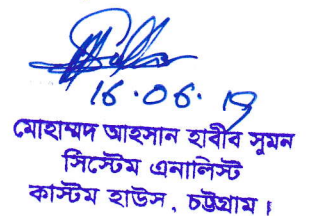 16.06.19
মোহাম্মদ আহসান হাবীব সুমন
সিস্টেম এনালিস্ট
কাস্টম হাউস, চট্টগ্রাম।